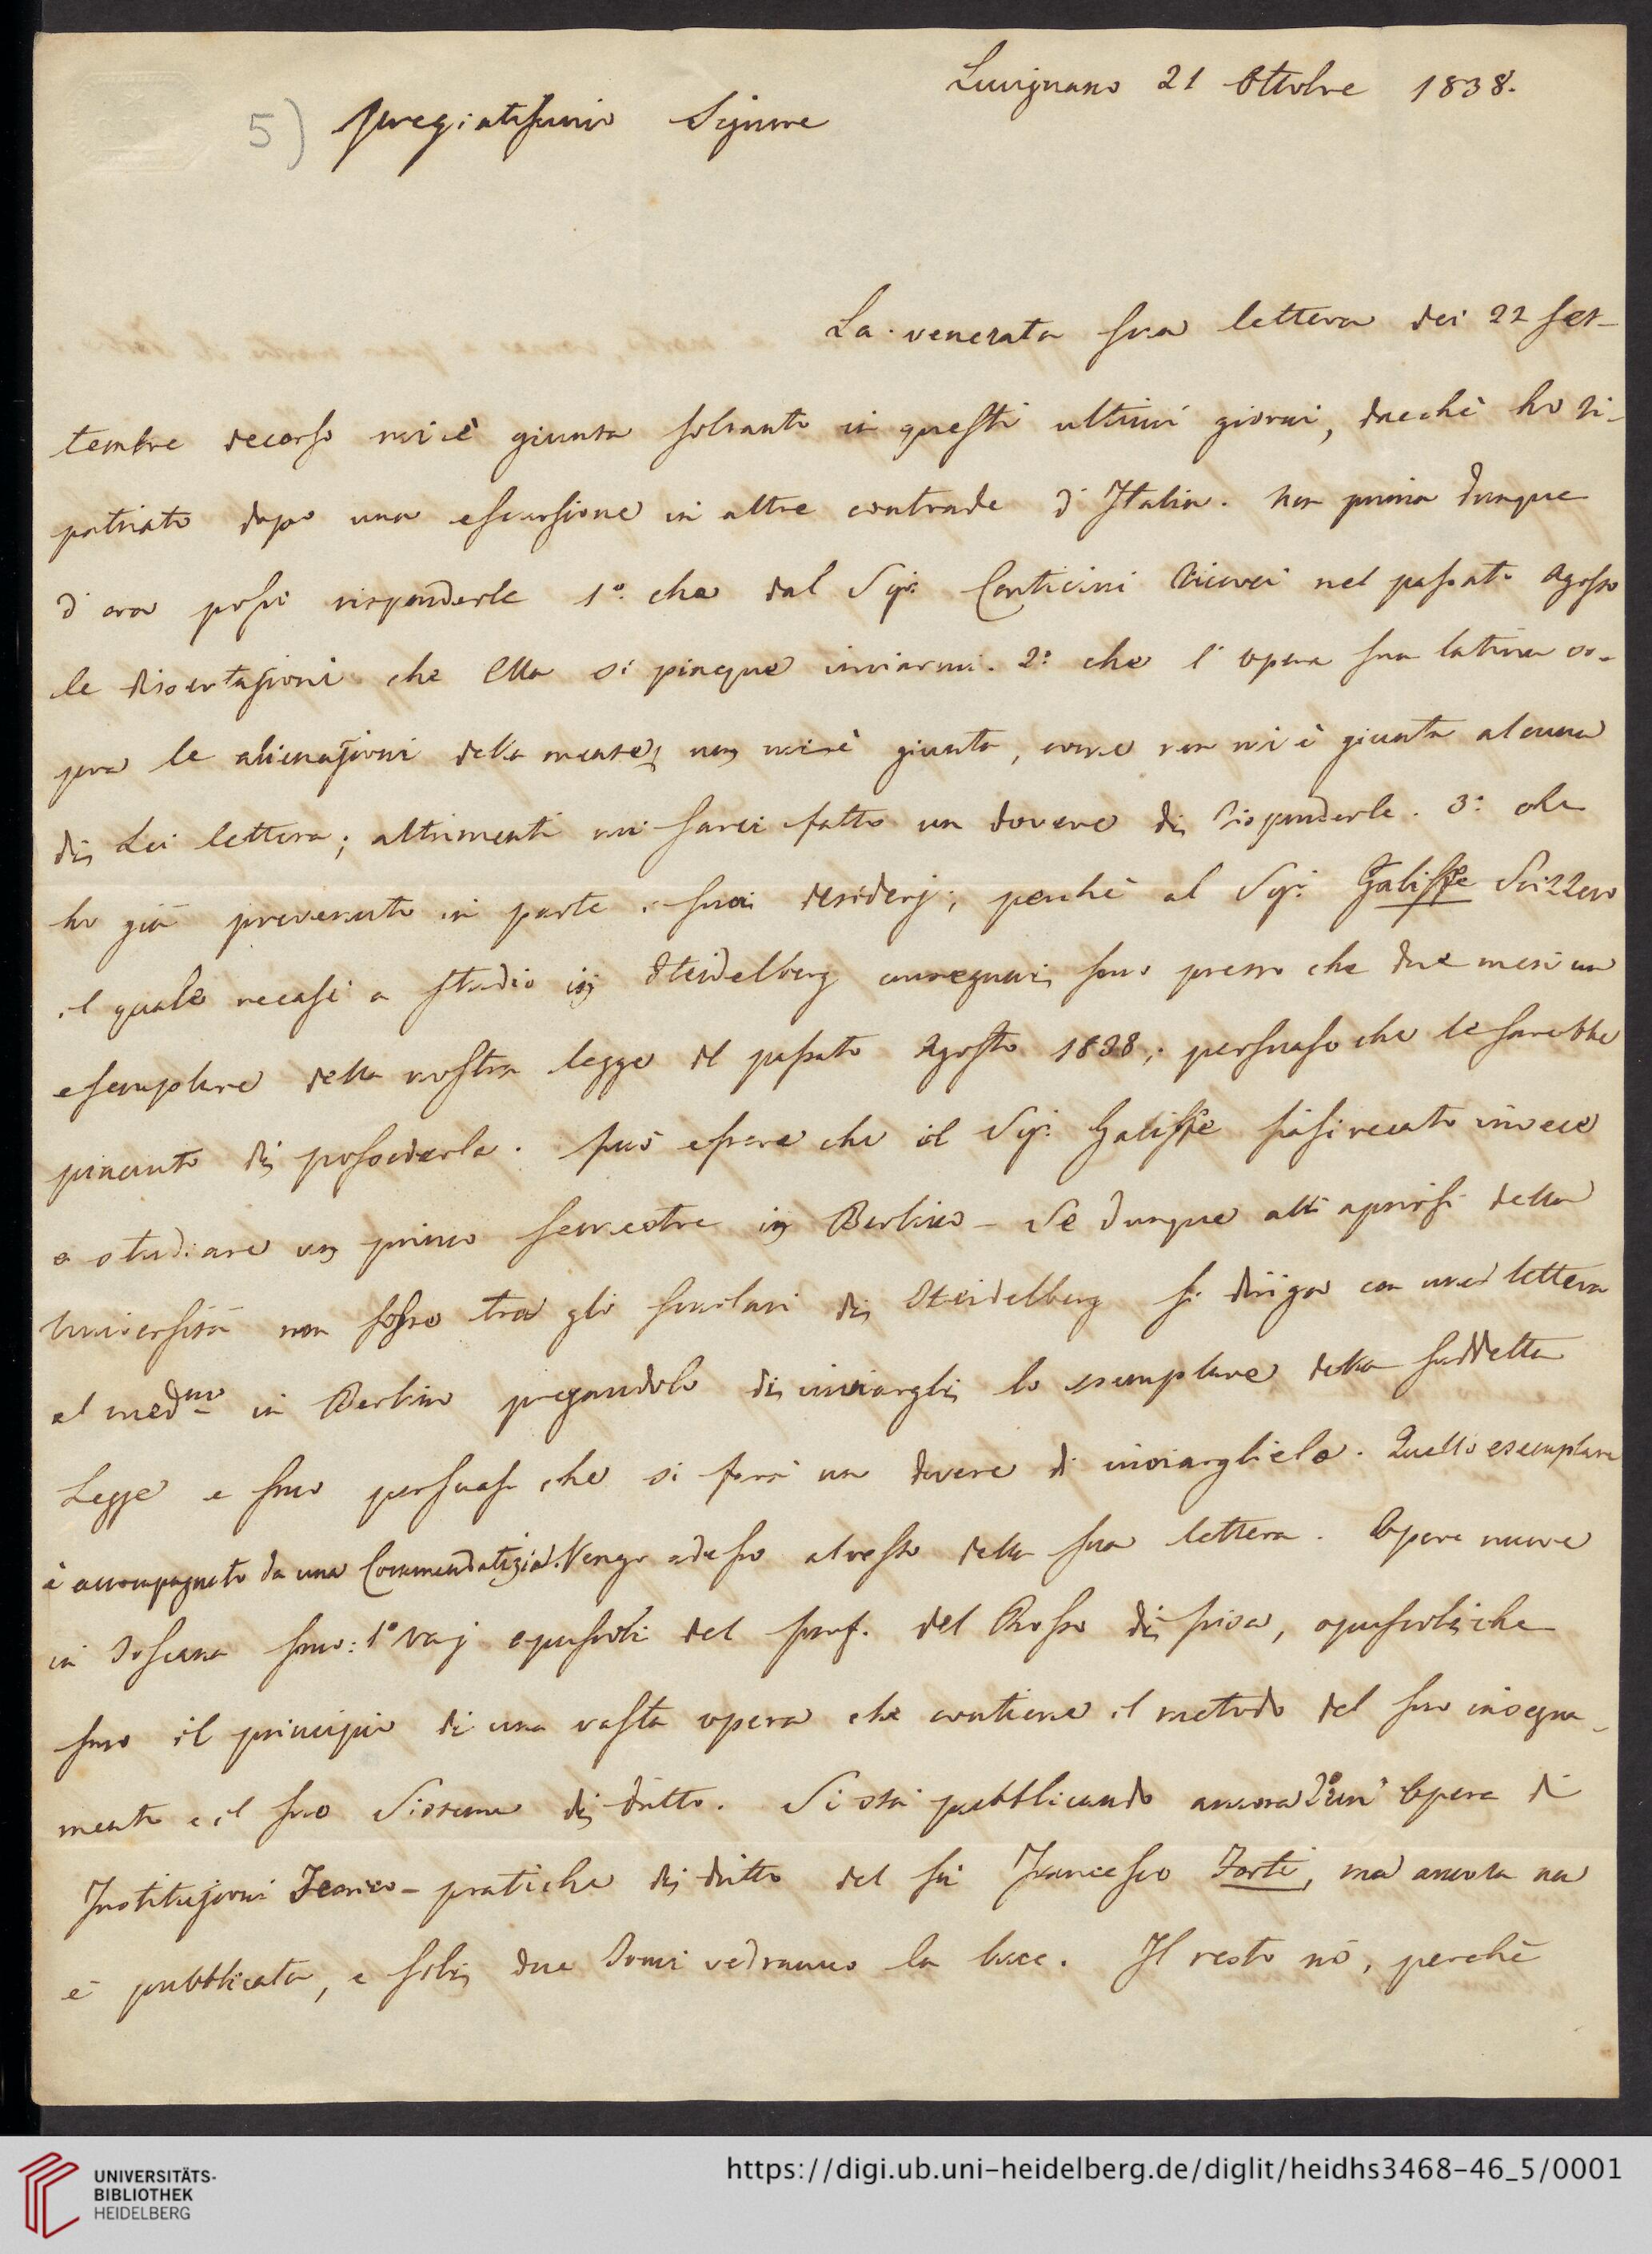 Lucignano 21 Ottobre 1838.
5) Pregiatissimo Signore
La venerata sua lettera dei 22 Set-
tembre decorso mi è giunta soltanto in questi ultimi giorni, dacchè ho ri-
patriato dopo una escursione in altre contrade d'Italia. Non prima dunque
d'ora posso risponderle 1.° che dal Sig.r Conticini ricevei nel passato Agosto
le dissertazioni che Ella si piacque inviarmi. 2.° che l'opera sua latina so-
pra le alienazioni della mente, non mi è giunta, come non mi è giunta alcuna
di Lei lettera; altrimenti mi sarei fatto un dovere di risponderle. 3.° che
ho già prevenuto in parte i suoi desiderj; perchè al Sig.r Galiffe Svizzero
il quale recasi a studio in Heidelberg consegnai sono presso che due mesi un
esemplare della nostra legge del passato Agosto 1838, persuaso che le sarebbe
piaciuto di possederla. Può essere che il Sig.r Galiffe siasi recato invece
a studiare un primo semestre in Berlino – Se dunque all'aprirsi della
Università non fosse tra gli scolari di Heidelberg si diriga con una lettera
al med.mo in Berlino pregandolo di inviargli lo esemplare della suddetta
Legge e sono persuaso che si farà un dovere di inviarglielo. Quello esemplare
è accompagnato da una Commendatizia. Vengo adesso al resto della sua lettera. Opere nuove
in Toscana sono: 1° varj opuscoli del Prof. del Rosso di Pisa, opuscoli che
sono il principio di una vasta opera che contiene il metodo del suo insegna-
mento e il suo Sistema di dritto. Si sta pubblicando ancora 2° un' Opera di
Instituzioni Teorico-pratiche di dritto del fù Francesco Forti, ma ancora non
è pubblicata, e soli due Tomi vedranno la luce. Il resto nò, perchè
UNIVERSITÄTS-
BIBLIOTHEK
HEIDELBERG
https://digi.ub.uni-heidelberg.de/diglit/heidhs3468-46_5/0001